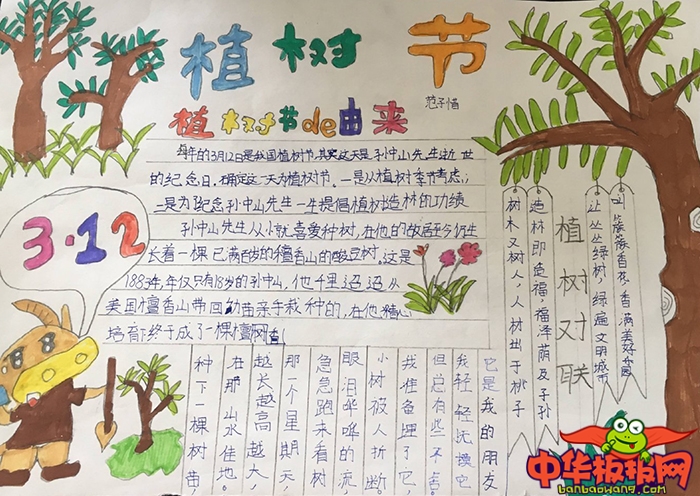 植树节
范子惜
植树节de由来
每年的3月12日是我国植树节,其实这天是孙中山先生逝世
的纪念日,确定这一天为植树节,一是从植树季节考虑;
二是为纪念孙中山先生一生提倡植树造林的功绩
孙中山先生从小就喜爱种树,在他的故居至今仍生
长着一棵已满百岁的檀香山的酸豆树。这是
1883年,年仅只有18岁的孙中山,他千里迢迢从
美国檀香山带回幼苗亲手栽种的,在他精心
培育下终于成了一棵
3·12
植树对联
叫簇簇香花,香满美好家园
让丛丛绿树,绿遍文明城市
造林即造福,福泽荫及子孙
树木又树人,人材出于桃子
它是我的朋友
我轻轻抚摸它
但总有些不舍。
我准备埋了它,
小树被人折断
眼泪哗哗的流,
急急跑来看树
那一个星期天
越长越高越大,
在那山水佳地。
种下一棵树苗,
中华板报网
banbaowang.com